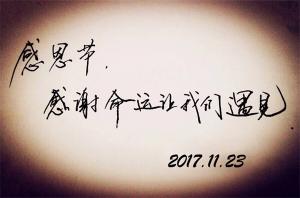 感恩节.
感谢命运让我们遇见
2017.11.23